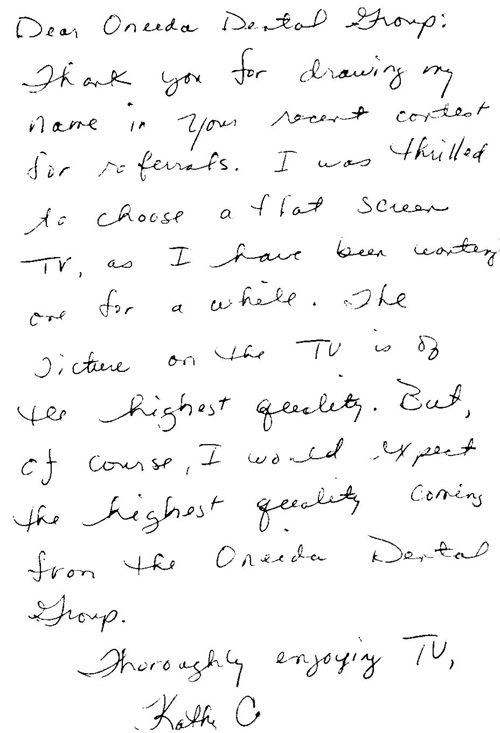 Dear Oneida Dental Group:
Thank you for drawing my
name in your recent contest
for referrals. I was thrilled
to choose a flat screen
TV, as I have been wanting
one for a while. The
picture on the TV is of
the highest quality. But,
of course, I would expect
the highest quality coming
from the Oneida Dental
Group.
Thoroughly enjoying TV,
Kathe C